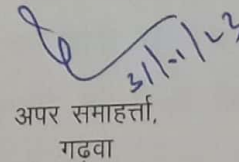 31/1/23
अपर समाहर्त्ता,
गढ़वा